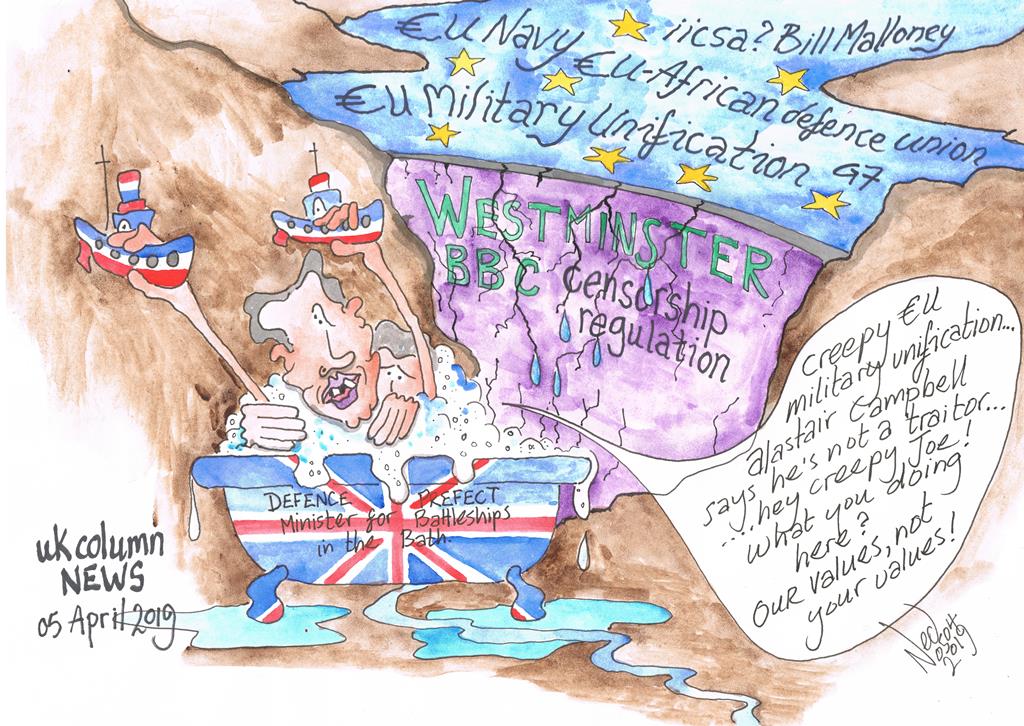 €U Navy
iicsa? Bill Malloney
€U-African defence union
€U Military Unification
G7
WESTMINSTER
BBC censorship
regulation
creepy €U
military unification...
alastair Campbell
says he's not a traitor...
...hey creepy Joe!
what you doing
here?
OUR values, not
your values!
DEFENCE PREFECT
Minister for Battleships
in the Bath.
uk column
NEWS
05 April 2019
2019